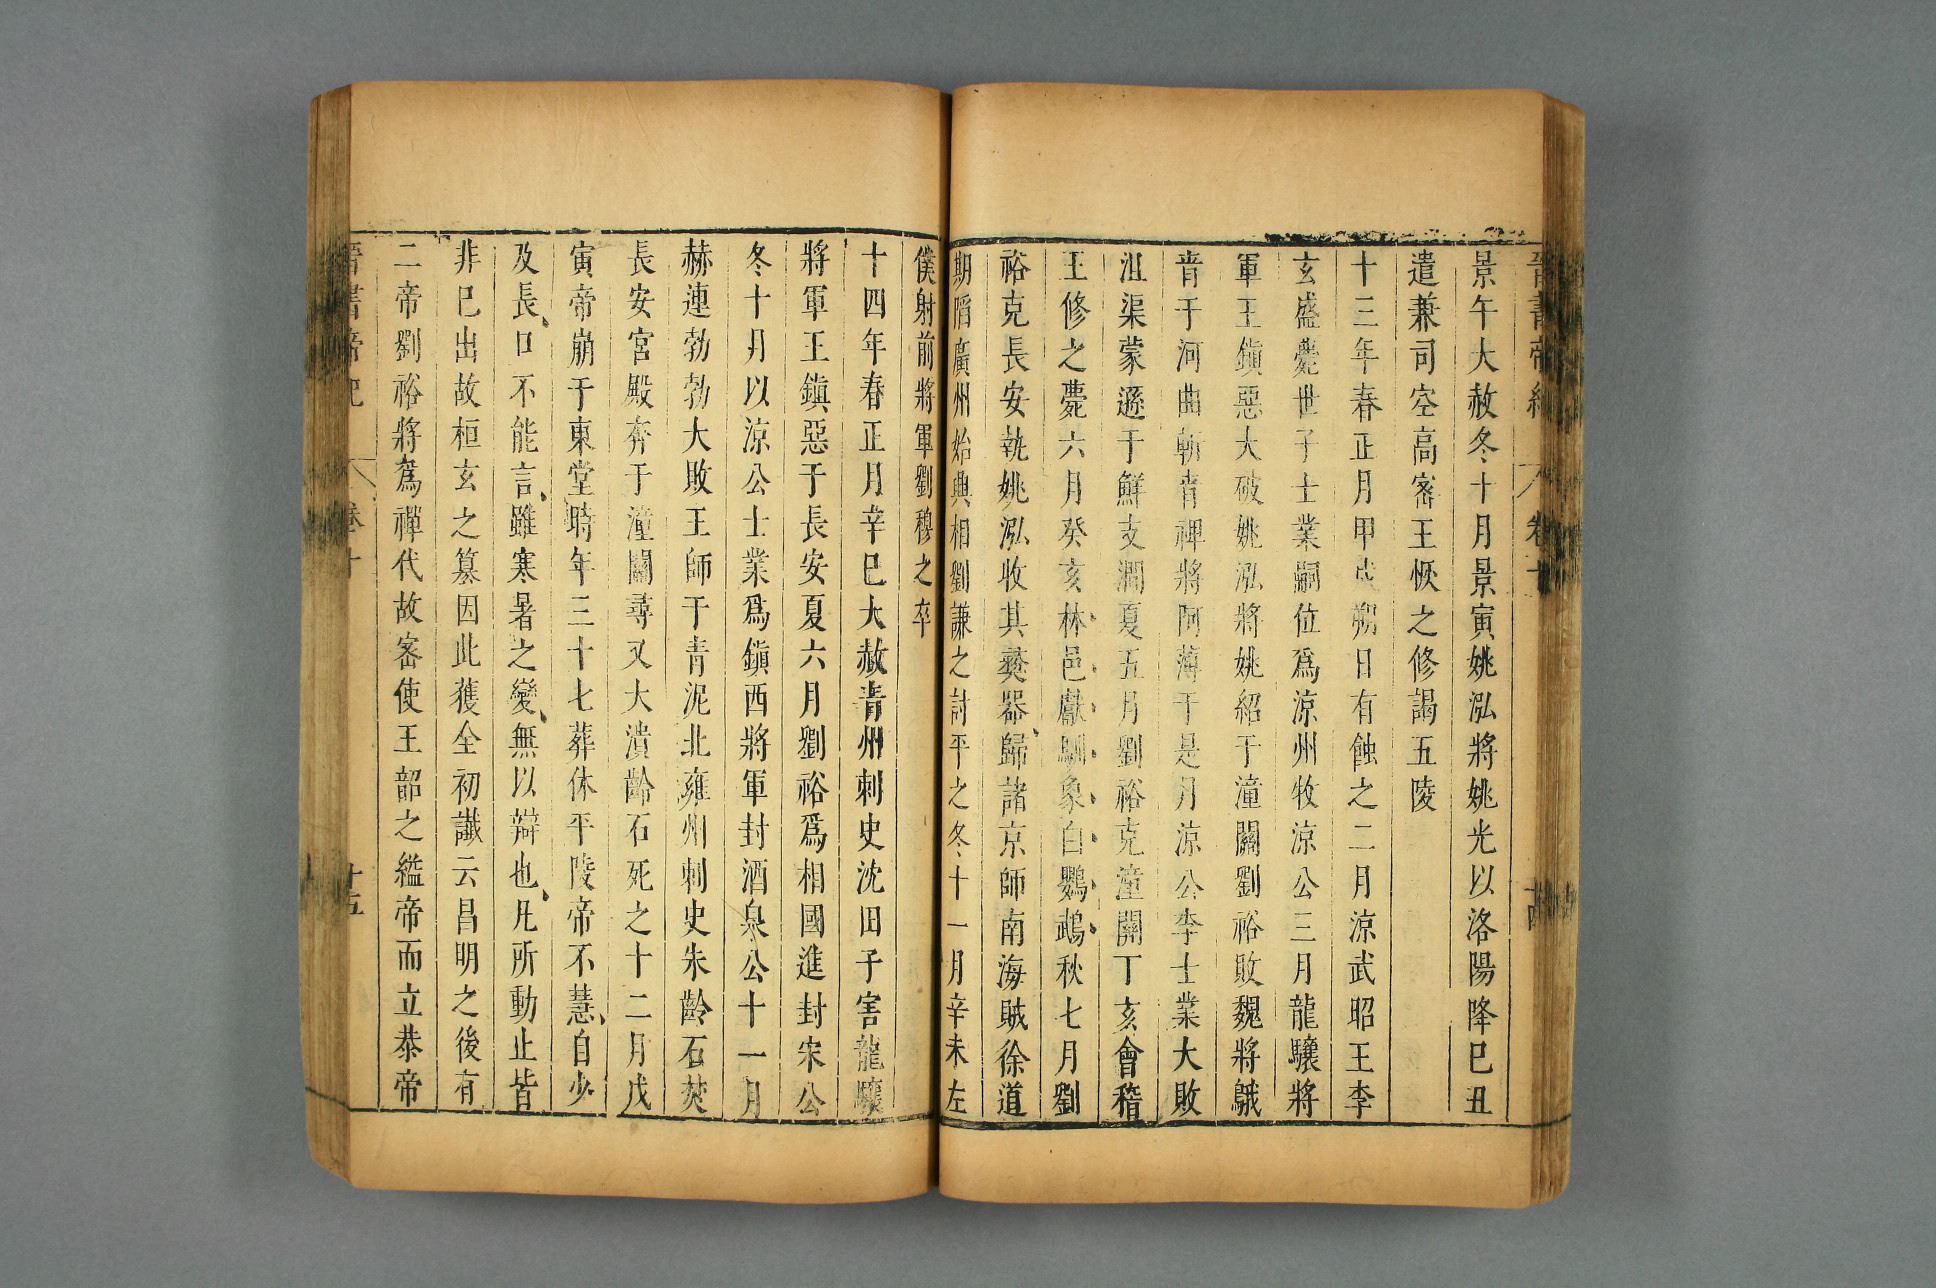 晉書帝紀 卷十 十四
景午大赦冬十月景寅姚泓將姚光以洛陽降巳丑
遣兼司空高密王恢之修謁五陵
十三年春正月甲戌朔日有蝕之二月涼武昭王李
玄盛薨世子士業嗣位爲涼州牧涼公三月龍驤將
軍王鎮惡大破姚泓將姚紹于潼關劉裕敗魏將鵝
青于河曲斬青裨將阿薄干是月涼公李士業大敗
沮渠蒙遜于鮮支澗夏五月劉裕克潼關丁亥會稽
王修之薨六月癸亥林邑獻馴象白鸚鵡秋七月劉
裕克長安執姚泓收其彝器歸諸京師南海賊徐道
期陷廣州始興相劉謙之討平之冬十一月辛未左
僕射前將軍劉穆之卒
十四年春正月辛巳大赦青州刺史沈田子害龍驤
將軍王鎮惡于長安夏六月劉裕爲相國進封宋公
冬十月以涼公士業爲鎮西將軍封酒泉公十一月
赫連勃勃大敗王師于青泥北雍州刺史朱齡石焚
長安宮殿奔于潼關尋又大潰齡石死之十二月戊
寅帝崩于東堂時年三十七葬休平陵帝不慧自少
及長口不能言雖寒暑之變無以辯也凡所動止皆
非巳出故桓玄之篡因此獲全初讖云昌明之後有
二帝劉裕將爲禪代故密使王韶之縊帝而立恭帝
晉書帝紀 卷十 十五